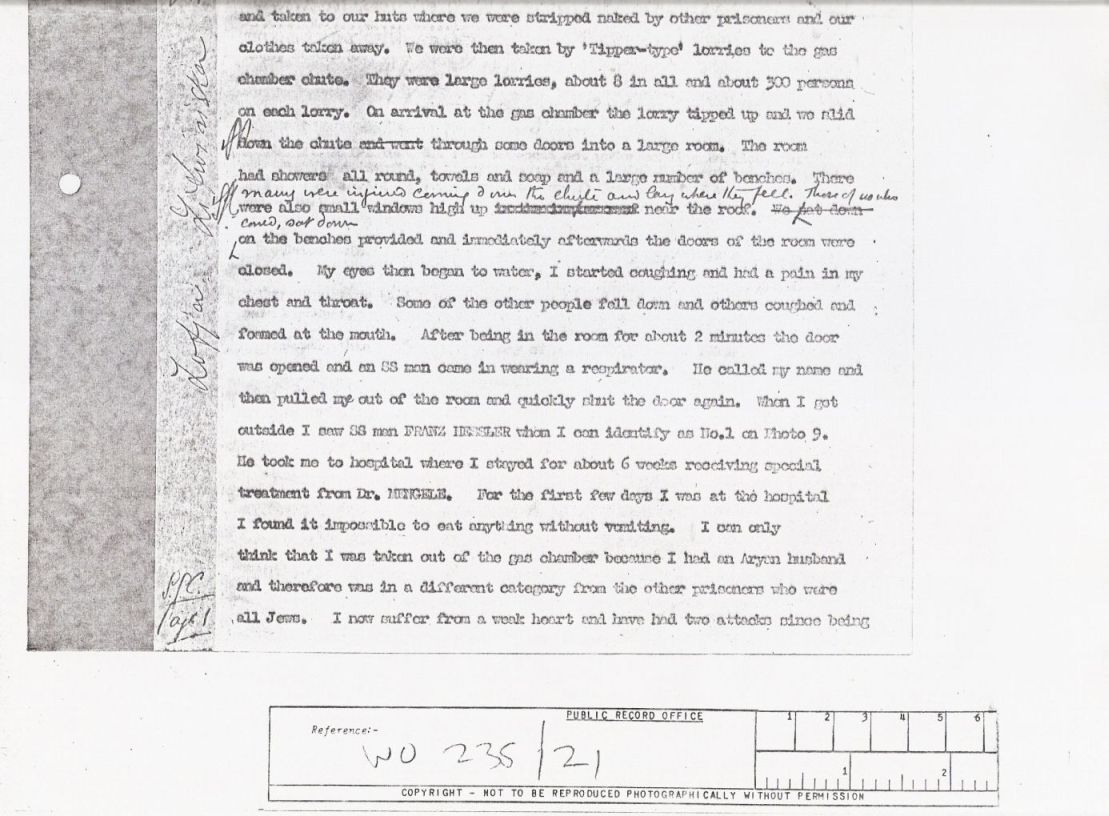 and taken to our huts where we were stripped naked by other prisoners and our
clothes taken away. We were then taken by 'Tipper-type' lorries to the gas
chamber chute. They were large lorries, about 8 in all and about 300 persons
on each lorry. On arrival at the gas chamber the lorry tipped up and we slid
down the chute and went through some doors into a large room. The room
had showers all round, towels and soap and a large number of benches. There
many were injured coming down the chute and lay where they fell. Those of us who
were also small windows high up near the roof. We sat down
could, sat down
on the benches provided and immediately afterwards the doors of the room were
closed. My eyes then began to water, I started coughing and had a pain in my
chest and throat. Some of the other people fell down and others coughed and
foamed at the mouth. After being in the room for about 2 minutes the door
was opened and an SS man came in wearing a respirator. He called my name and
then pulled me out of the room and quickly shut the door again. When I got
outside I saw SS man FRANZ HESSLER whom I can identify as No.1 on Photo 9.
He took me to hospital where I stayed for about 6 weeks receiving special
treatment from Dr. MENGELE. For the first few days I was at the hospital
I found it impossible to eat anything without vomiting. I can only
think that I was taken out of the gas chamber because I had an Aryan husband
and therefore was in a different category from the other prisoners who were
all Jews. I now suffer from a weak heart and have had two attacks since being
PUBLIC RECORD OFFICE
Reference:-
WO 235/21
1 2 3 4 5 6
1 2
COPYRIGHT - NOT TO BE REPRODUCED PHOTOGRAPHICALLY WITHOUT PERMISSION